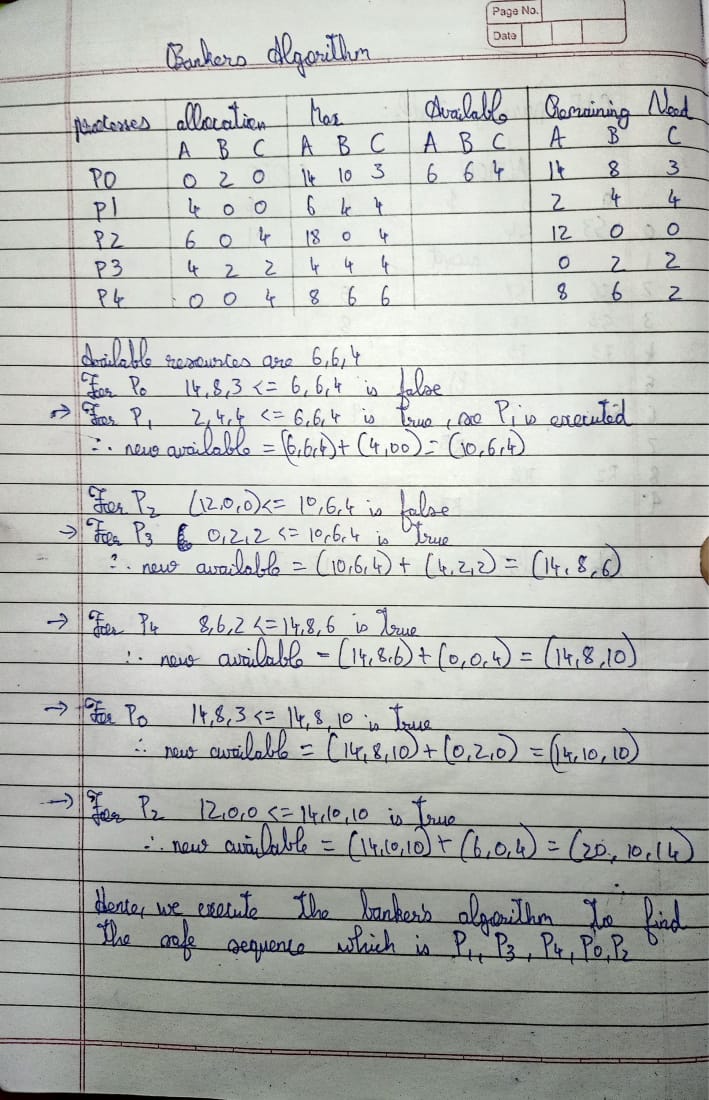 Page No.
Date
Bankers Algorithm
processes allocation Max Available Remaining Need
A B C A B C A B C A B C
P0 0 2 0 14 10 3 6 6 4 14 8 3
P1 4 0 0 6 4 4 2 4 4
P2 6 0 4 18 0 4 12 0 0
P3 4 2 2 4 4 4 0 2 2
P4 0 0 4 8 6 6 8 6 2
Available resources are 6,6,4
For P0 14,8,3 <= 6,6,4 is false
→ For P1 2,4,4 <= 6,6,4 is true, so P1 is executed
∴ new available = (6,6,4) + (4,00) = (10,6,4)
For P2 (12,0,0) <= 10,6,4 is false
→ For P3 0,2,2 <= 10,6,4 is true
∴ new available = (10,6,4) + (4,2,2) = (14,8,6)
→ For P4 8,6,2 <= 14,8,6 is True
∴ new available = (14,8,6) + (0,0,4) = (14,8,10)
→ For P0 14,8,3 <= 14,8,10 is True
∴ new available = (14,8,10) + (0,2,0) = (14,10,10)
→ For P2 12,0,0 <= 14,10,10 is True
∴ new available = (14,10,10) + (6,0,4) = (20, 10,14)
Hence, we execute the banker's algorithm to find
the safe sequence which is P1, P3, P4, P0, P2